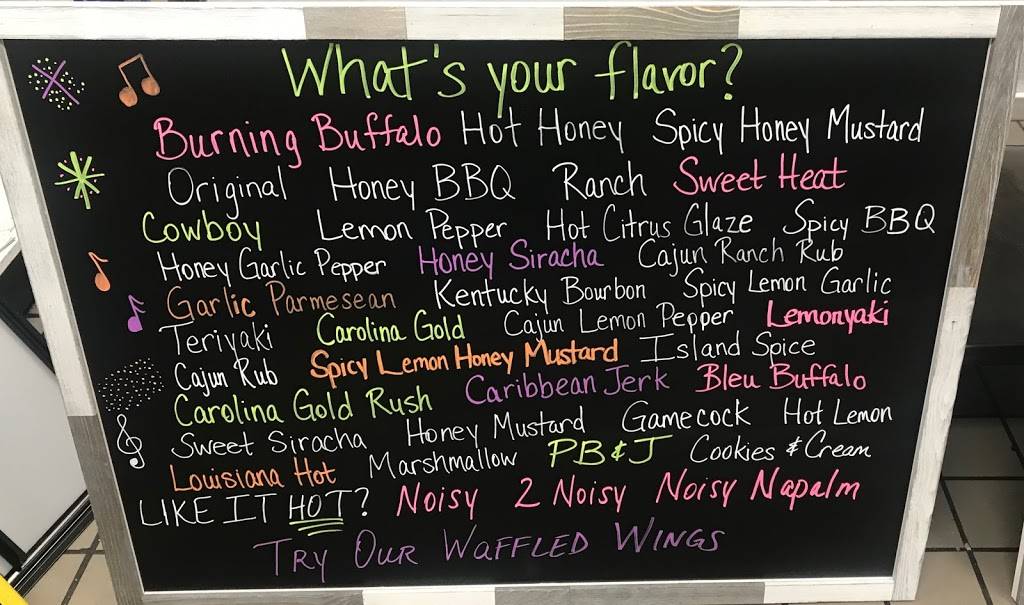 What's your flavor?
Burning Buffalo Hot Honey Spicy Honey Mustard
Original Honey BBQ Ranch Sweet Heat
Cowboy Lemon Pepper Hot Citrus Glaze Spicy BBQ
Honey Garlic Pepper Honey Siracha Cajun Ranch Rub
Garlic Parmesean Kentucky Bourbon Spicy Lemon Garlic
Teriyaki Carolina Gold Cajun Lemon Pepper Lemonyaki
Cajun Rub Spicy Lemon Honey Mustard Island Spice
Carolina Gold Rush Caribbean Jerk Bleu Buffalo
Sweet Siracha Honey Mustard Gamecock Hot Lemon
Louisiana Hot Marshmallow PB&J Cookies & Cream
LIKE IT HOT? Noisy 2 Noisy Noisy Napalm
TRY OUR WAFFLED WINGS